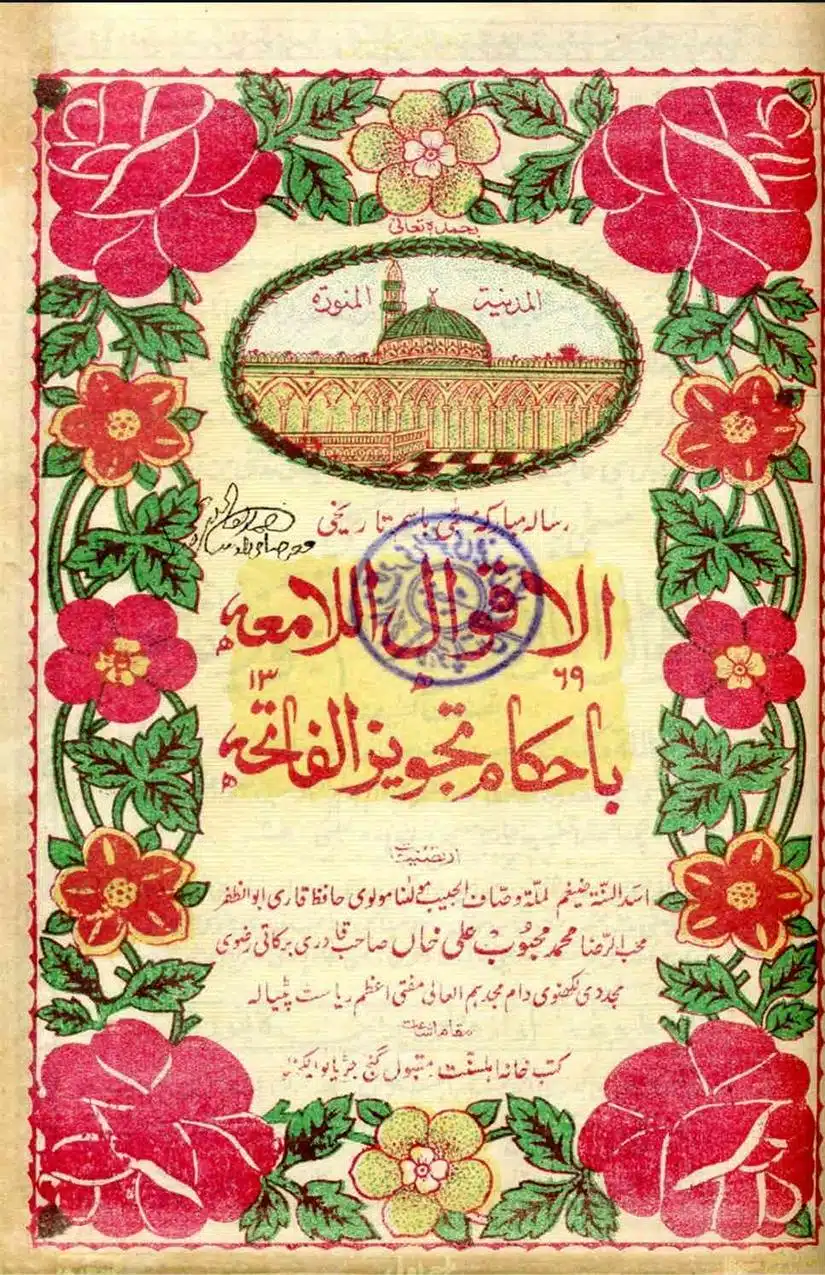 بحمدہ تعالیٰ
المدینۃ المنورہ
رسالہ مبارکہ مسمّٰی باسم تاریخی
الاقوال اللامعہ
۱۳ ھ ۶۹
باحکام تجویز الفاتحہ
از تصنیف
اسد السنۃ ضیغم الملۃ وصاف الحبیب مولٰنا مولوی حافظ قاری ابوالظفر
محب الرضا محمد محبوب علی خاں صاحب قادری برکاتی رضوی
مجددی لکھنوی دام مجدہم العالی مفتی اعظم ریاست پٹیالہ
مقام اشاعت
کتب خانہ اہلسنت مقبول گنج